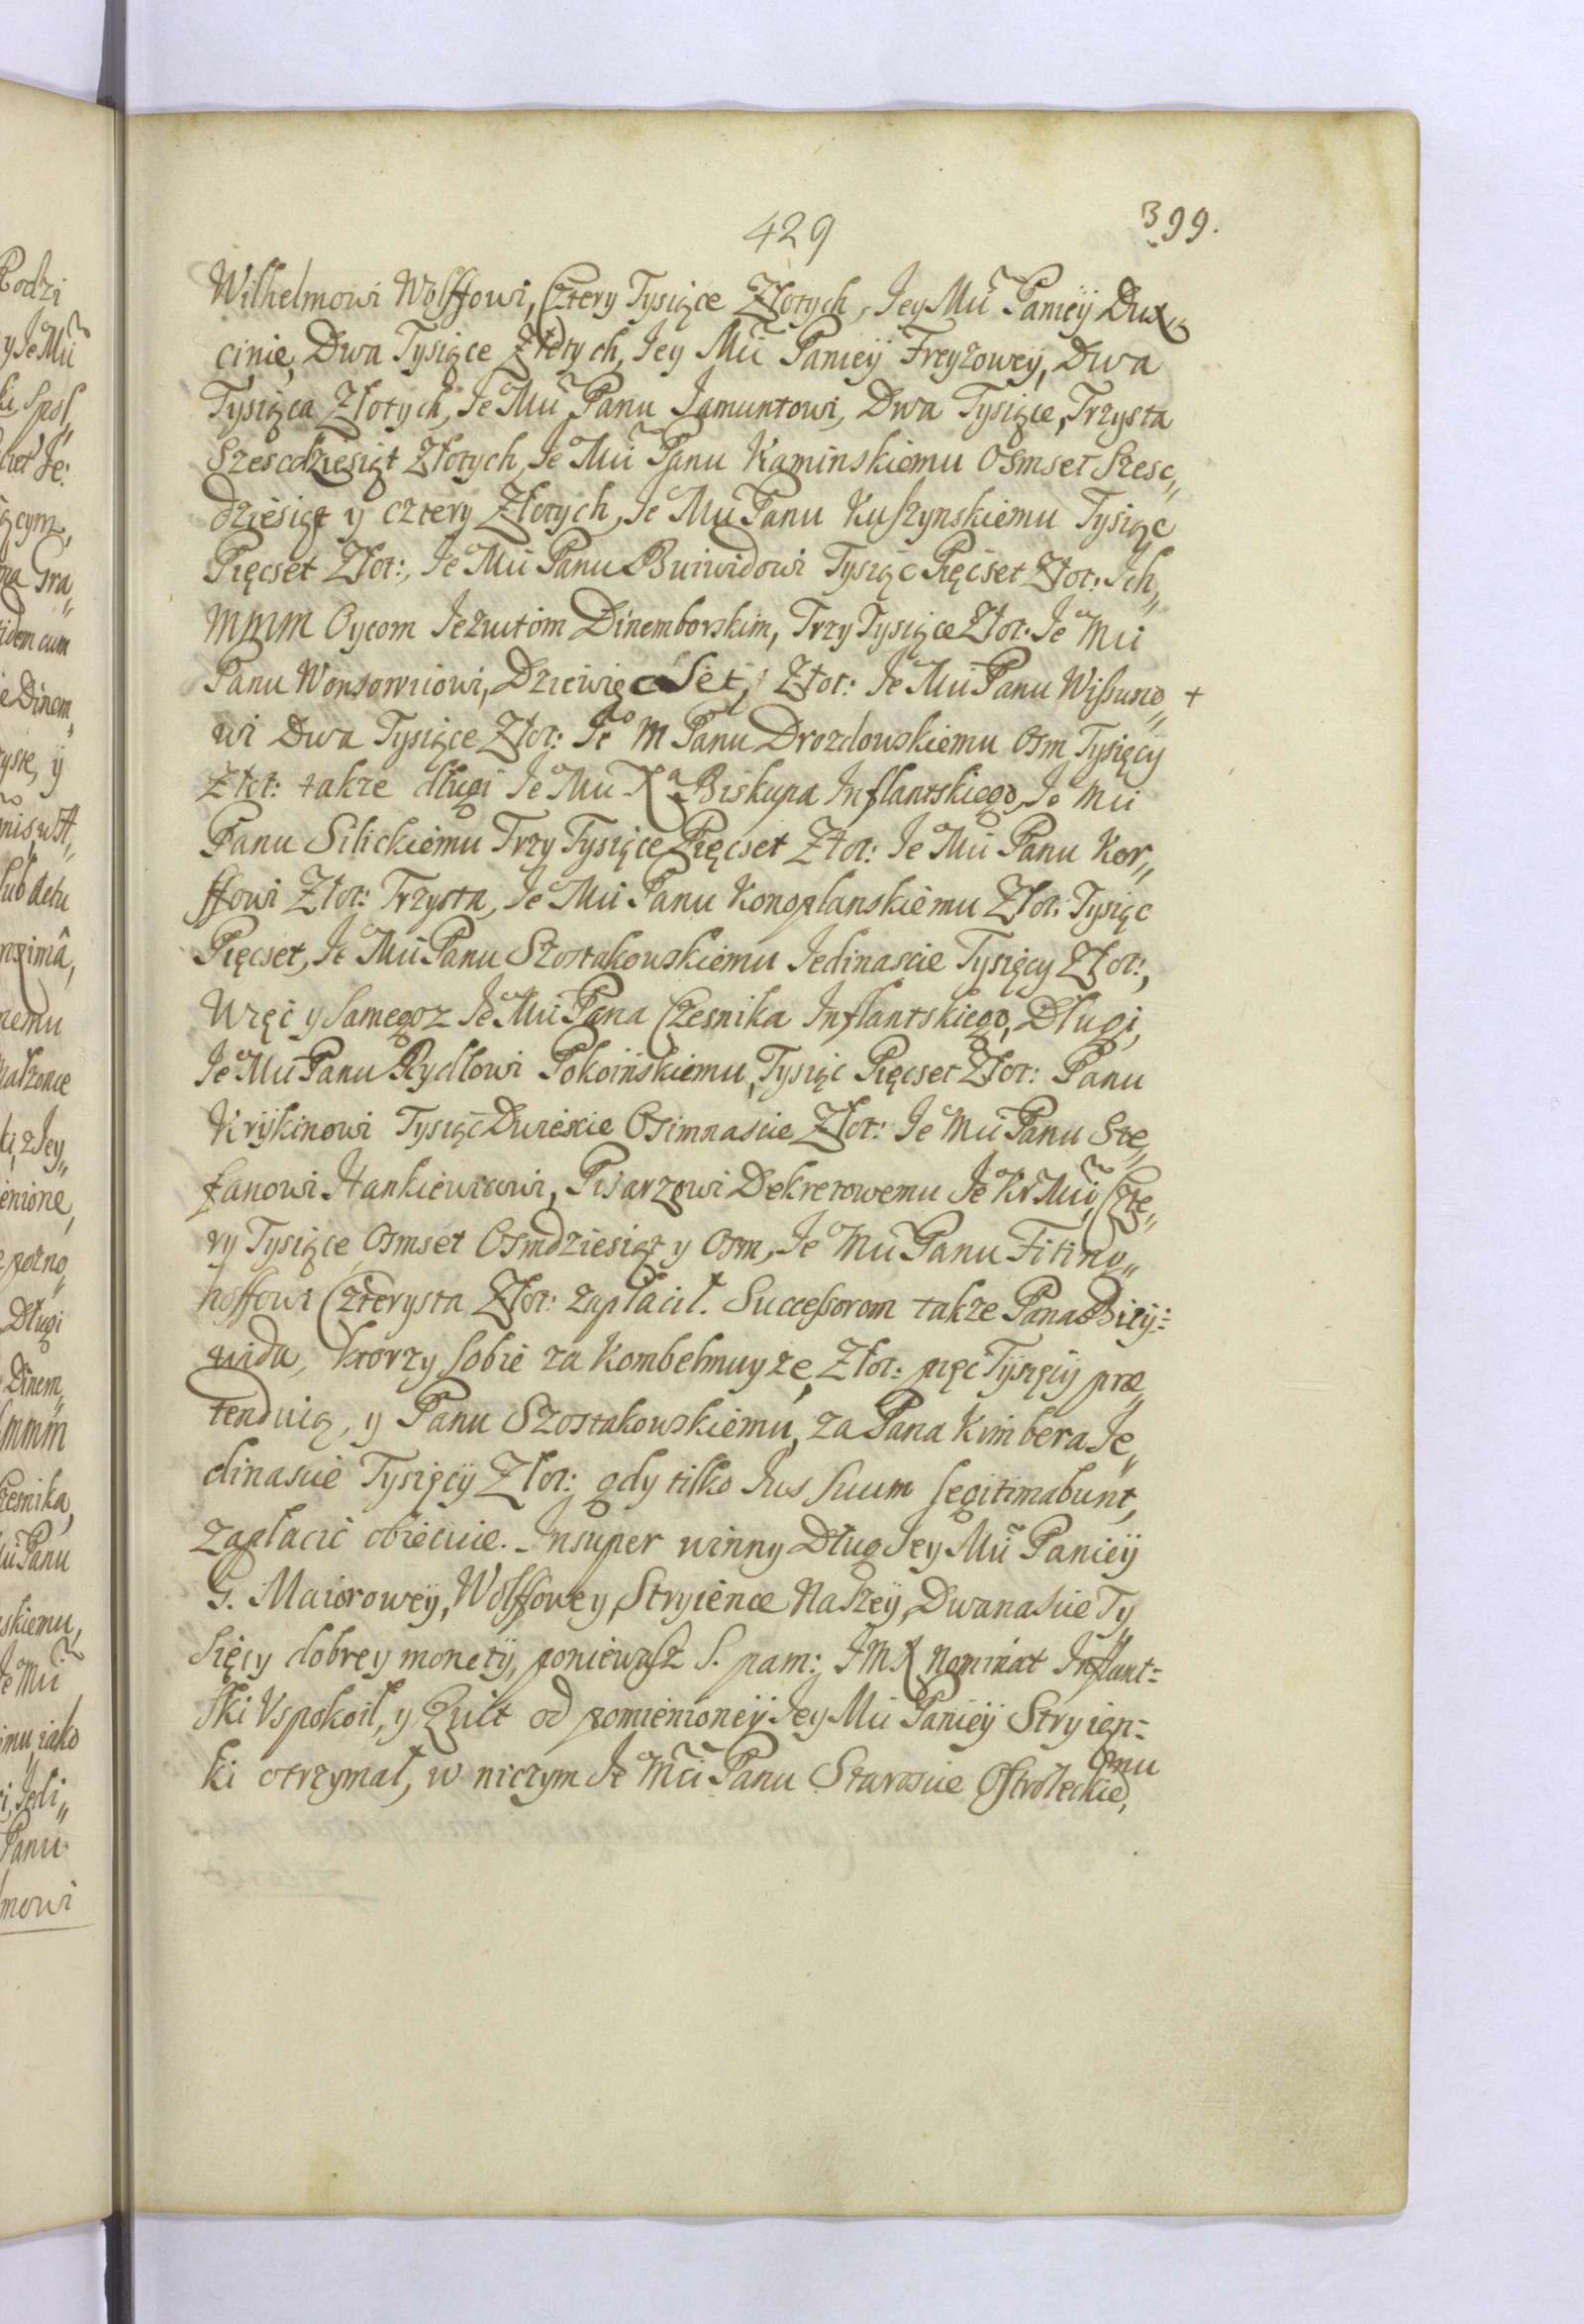 429
399.
Wilhelmowi Wolffowi, Cztery Tysiące Złotych, Jey Mči Panieÿ Dux„
cinie, Dwa Tysiące Złotych, Jey Mči Panieÿ Freyzoweÿ, Dwa
Tysiąca Złotych, Je Mči Panu Jamuntowi, Dwa Tysiące, Trzysta
Szescdziesiąt Złotych, Je Mči Panu Kaminskiemu Osmset Szesc„
dziesiąt y cztery Złotych, Je Mči Panu Kuszynskiemu Tysiąc
Pięcset Złot:, Je Mči Panu Buiwidowi Tysiąc Pięcset Złot: Ich„
MMM Oycom Jezuitom Dinemborskim, Trzy Tysiące Złot: Je Mči
Panu Wonsowiiowi, Dziewięc Set, Złot: Je Mči Panu Wissuno„ +
wi Dwa Tysiące Złot: Je° M Panu Drozdowskiemu Osm Tysięcy
Złot: takze długi Je Mči Xa Biskupa Inflantskiego, Je Mči
Panu Silickiemu Trzy Tysiące Pięcset Złot: Je Mči Panu Kor„
ffowi Złot: Trzysta, Je Mči Panu Konoplanskiemu Złot: Tysiąc
Pięcset, Je Mči Panu Szostakowskiemu Jedinascie Tysięcy Złot:,
Więc y samegoz Je Mči Pana Czesnika Inflantskiego, Długi,
Je Mči Panu Rydlowi Pokoiinskiemu, Tysiąc Pięcset Złot: Panu
Krÿkinowi Tysiąc Dwiescie Osimnascie Złot: Je Mči Panu Ste„
fanowi Hankiewiczowi, Pisarzowi Dekretowemu Je Kr Mči, Czte„
ry Tysiące Osmset Osmdziesiąt y Osm, Je Mči Panu Fitino„
hoffowi Czterysta Złot: zapłacił. Successorom takze Pana Biiÿ:
wida, ktorzy sobie za Kombelmuyzę Złot: pięc Tysięcÿ præ„
tenduią, y Panu Szostakowskiemu, za Pana Kimbera Je„
dinascie Tysięcÿ Złot: gdy tilko Jus suum legitimabunt,
zapłacic obiecuie. Insuper winny Dług Jey Mči Panieÿ
G. Maioroweÿ, Wolffowey, Stryience Naszeÿ, Dwanascie Ty„
sięcy dobrey monetÿ, poniewasz S. pam: JMX Nominat Inflant=
ski Uspokoił, y Quit od pomienioneÿ Jey Mči Panieÿ Stryien=
ki otrzymał, w niczym Je Mči Panu Staroscie Ostroleckie„
mu